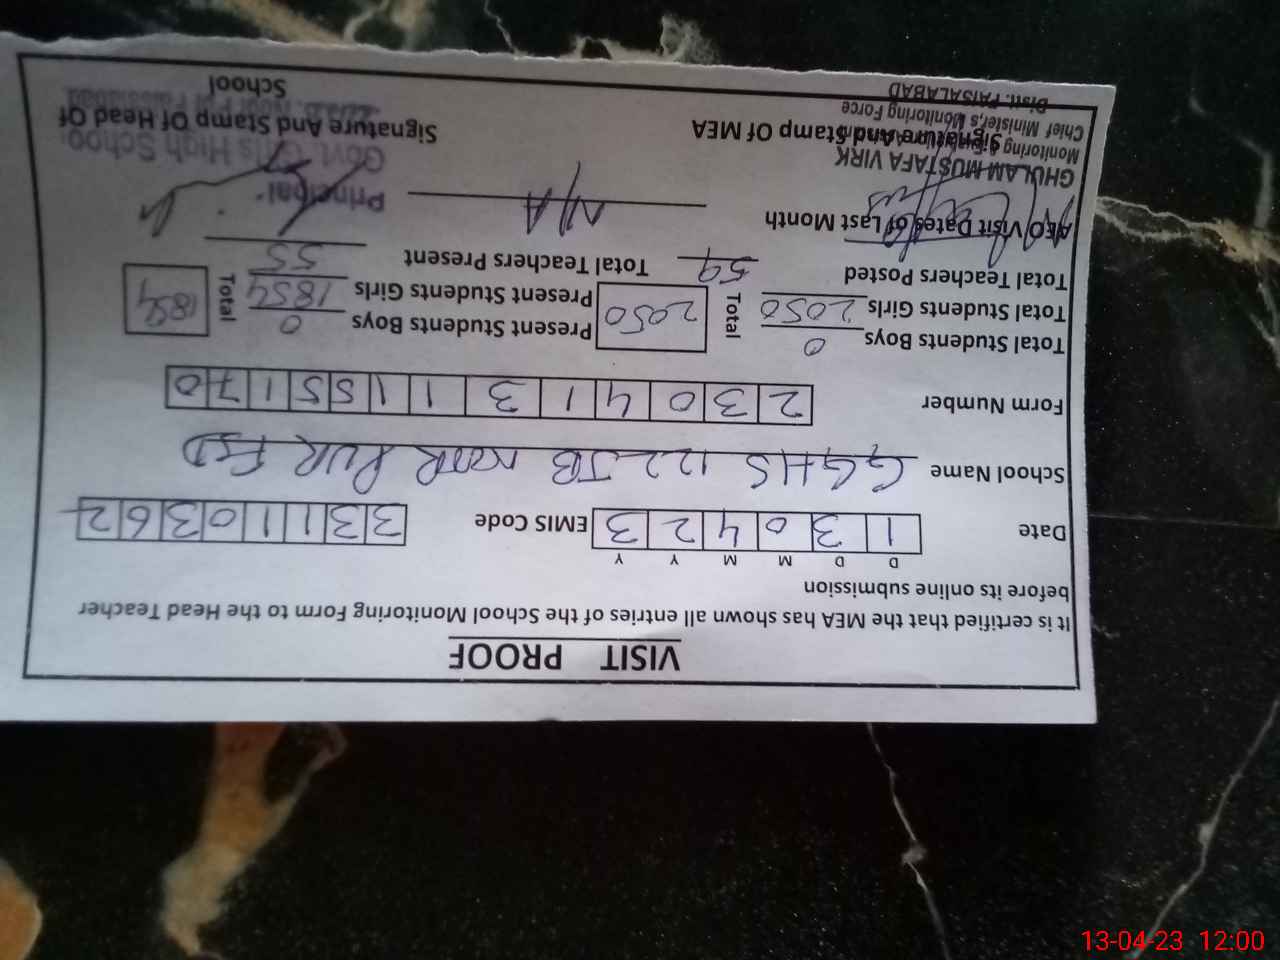 VISIT PROOF
It is certified that the MEA has shown all entries of the School Monitoring Form to the Head Teacher
before its online submission
D D M M Y Y
Date 1 3 0 4 2 3 EMIS Code 3 3 1 1 0 3 6 2
School Name GGHS 122 JB NOOR PUR FSD
Form Number 2 3 0 4 1 3 1 1 5 5 1 7 0
Total Students Boys 0 Present Students Boys 0
Total Students Girls 2050 Total 2050 Present Students Girls 1854 Total 1854
Total Teachers Posted 59 Total Teachers Present 55
AEO Visit Dates of Last Month N/A
Principal
GHULAM MUSTAFA VIRK Govt. Girls High School
Monitoring
Signature And Stamp Of MEA Signature And Stamp Of Head Of
Chief Minister,s Monitoring Force
School
Distt. FAISALABAD
13-04-23 12:00